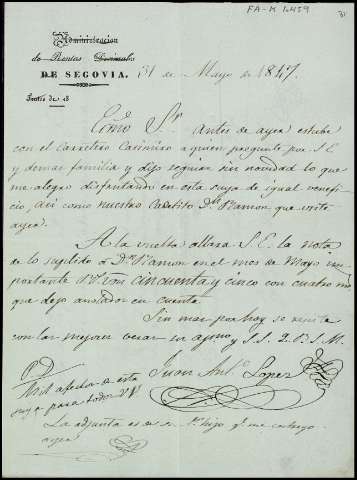 FA-M 1.459
Administracion
de Rentas Decimales
DE SEGOVIA.
31 de Mayo de 1847.
Exmo Sr. Antes de ayer estube
con el Carretero Casimiro a quien pregunte por S.E
y demas familia y dijo seguian sin novedad lo que
me alegro disfrutando en esta suya de igual benefi
cio, asi como nuestro Cadetito Dn Ramon que visité
ayer.
A la vuelta allara S.E. la nota
de lo suplido a Dn Ramon en el mes de Mayo im
portante rs. vn cincuenta y cinco con cuatro ms
que dejo anotados en cuenta.
Sin mas por hoy se repite
con las mejores veras su ajmo y S.S. Q.B.S.M.
Juan Anto Lopez
PD
Mil afectos de esta
suya para todos VV
La adjunta es de su Sr. hijo q. me entrego
ayer